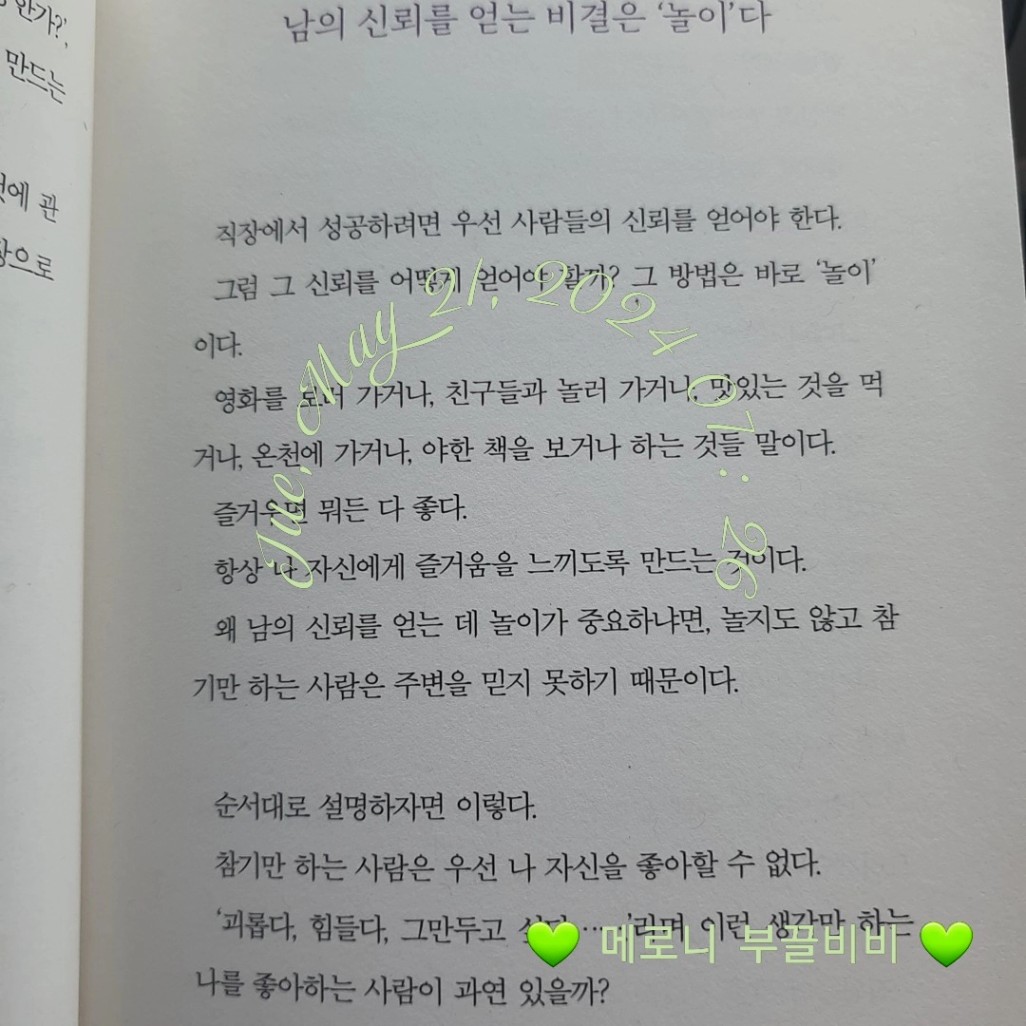 안가?',
만드는
것에 관
장으로
남의 신뢰를 얻는 비결은 '놀이'다
직장에서 성공하려면 우선 사람들의 신뢰를 얻어야 한다.
그럼 그 신뢰를 어떻게 얻어야 할까? 그 방법은 바로 '놀이'
이다.
영화를 보러 가거나, 친구들과 놀러 가거나, 맛있는 것을 먹
거나, 온천에 가거나, 야한 책을 보거나 하는 것들 말이다.
즐거우면 뭐든 다 좋다.
항상 나 자신에게 즐거움을 느끼도록 만드는 것이다.
왜 남의 신뢰를 얻는 데 놀이가 중요하냐면, 놀지도 않고 참
기만 하는 사람은 주변을 믿지 못하기 때문이다.
순서대로 설명하자면 이렇다.
참기만 하는 사람은 우선 나 자신을 좋아할 수 없다.
'괴롭다, 힘들다, 그만두고 싶다……'라며 이런 생각만 하는
나를 좋아하는 사람이 과연 있을까?
Tue, May 21, 2024 07:26
💚 메로니 부끌비비 💚